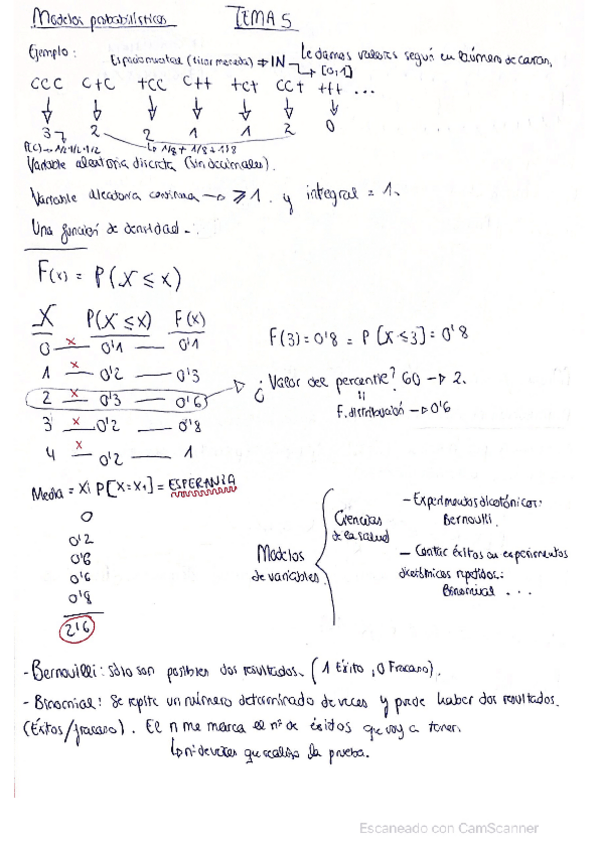 Modelos probabilísticos TEMA 5
Ejemplo: Espacio muestral (tirar moneda) → IN → Le damos valores según el número de caras.
[0,1]
CCC C+C +CC C++ +C+ CC+ +++ ...
3 2 2 1 1 2 0
1/8 + 1/8 + 1/8
Variable aleatoria discreta (sin decimales).
Variable aleatoria continua → ≥ 1. y integral = 1.
Una función de densidad -.
F(x) = P(X ≤ x)
X P(X ≤ x) F(x)
0 x 0'1 — 0'1
1 x 0'2 — 0'3
2 x 0'3 — 0'6
3 x 0'2 — 0'8
4 x 0'2 — 1
F(3) = 0'8 = P[X ≤ 3] = 0'8
¿Valor del percentil? 60 → 2.
F. distribución → 0'6
Media = Xi P[X = Xi] = ESPERANZA
0
0'2
0'6
0'6
0'8
2'6
Modelos de variables
Ciencias de la salud
- Experimentos dicotómicos:
Bernoulli.
- Contar éxitos en experimentos
dicotómicos repetidos:
Binomial ...
- Bernouilli: sólo son posibles dos resultados. (1 Éxito, 0 Fracaso).
- Binomial: Se repite un número determinado de veces y puede haber dos resultados.
(Éxitos/fracaso). El n me marca el nº de éxitos que voy a tener.
nº de veces que realizo la prueba.
Escaneado con CamScanner